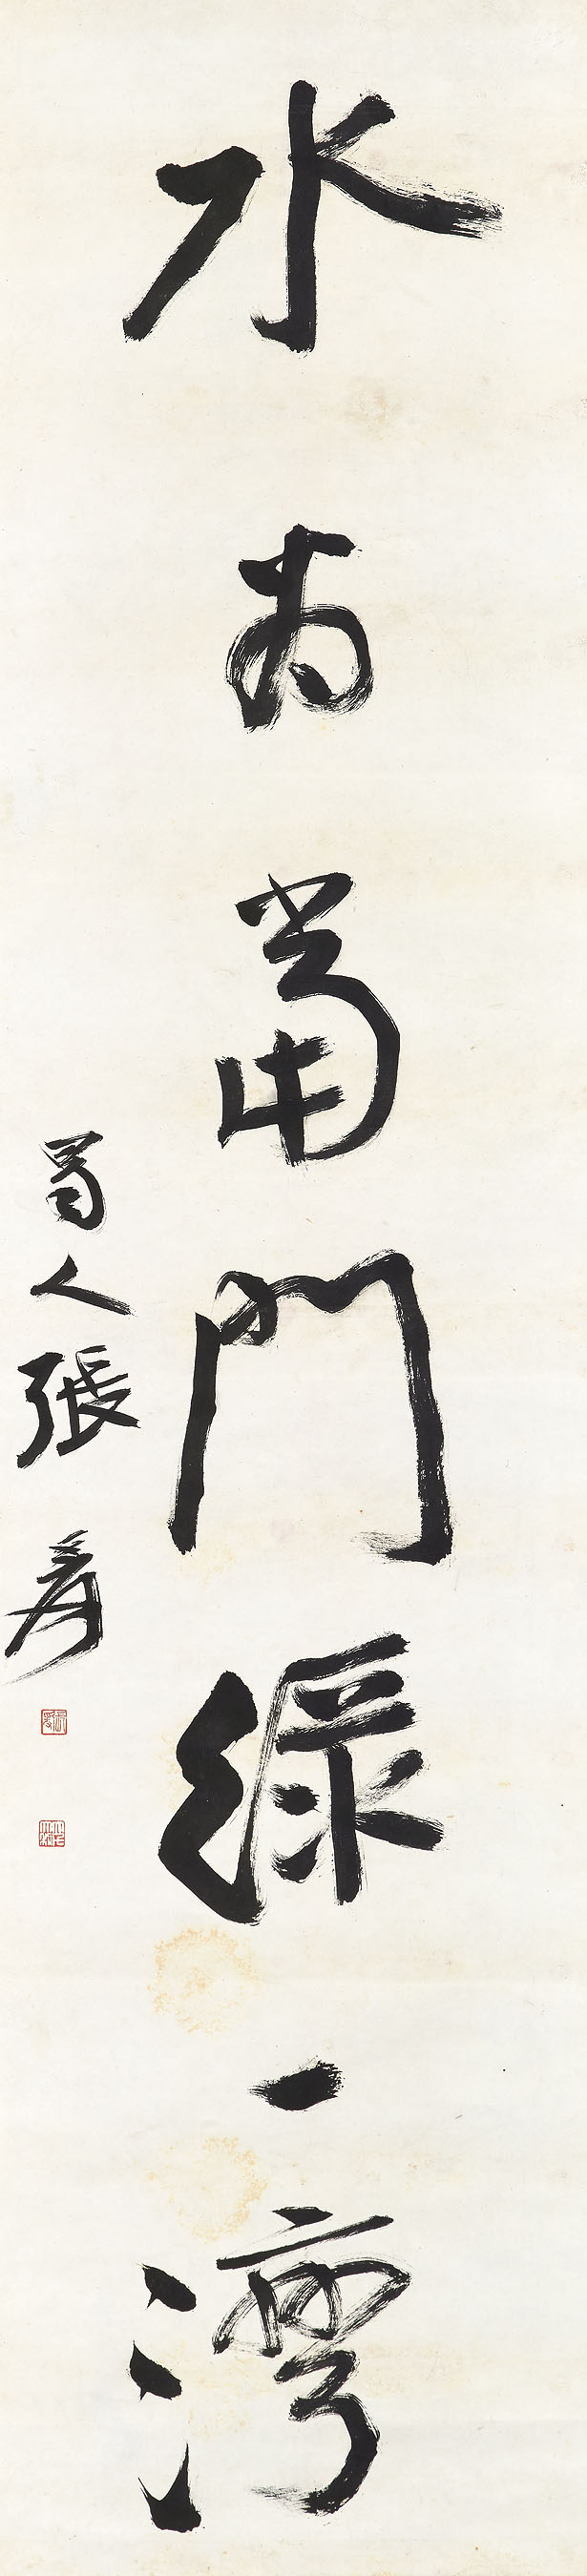 水為當門綠一灣
蜀人張爰